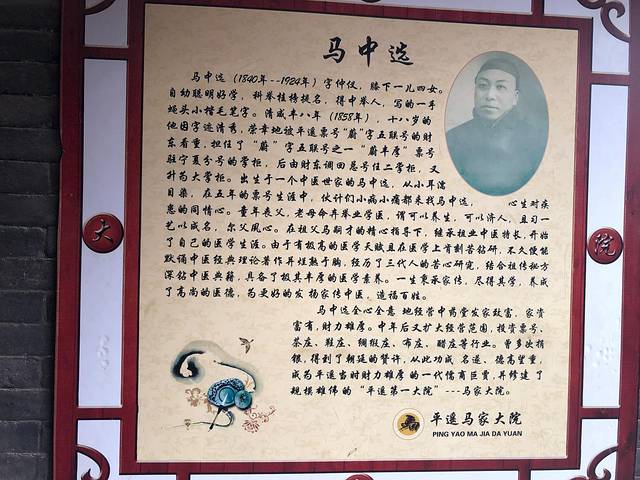 马中选
马中选（1840年--1924年）字仲仪，膝下一儿四女。
自幼聪明好学，科举桂榜提名，得中举人，写的一手
蝇头小楷毛笔字。清咸丰八年（1858年），十八岁的
他因字迹清秀，荣幸地被平遥票号“蔚”字五联号的财
东看重，担任了“蔚”字五联号之一“蔚丰厚”票号
驻宁夏分号的掌柜，后由财东调回总号任二掌柜，又
升为大掌柜。出生于一个中医世家的马中选，从小耳濡
目染，在五年的票号生涯中，伙计们小病小痛都来找马中选，心生对疾
患的同情心。童年丧父，老母命弃举业学医，谓可以养生，可以济人，且习一
艺以成名，尔父凤心。在祖父马朝对的精心指导下，继承祖业中医特长，开始
了自己的医学生涯。由于有极高的医学天赋且在医学上肯刻苦钻研，不久便能
默诵中医经典理论著作并烂熟于胸，经历了三代人的苦心研究，结合祖传秘方
深钻中医典籍，具备了极其丰厚的医学素养。一生秉承家传，尽得其学，养成
了高尚的医德，为更好的发扬家传中医，造福百姓。
马中选全心全意地经营中药堂发家致富，家资
富有，财力雄厚。中年后又扩大经营范围，投资票号、
茶庄、鞋庄、绸缎庄、布庄、醋庄等行业。曾多次捐
银，得到了朝廷的赞许，从此功成名遂、德高望重，
成为平遥当时财力雄厚的一代儒商巨贾，并修建了
规模雄伟的“平遥第一大院”---马家大院。
大
院
平遥马家大院
PING YAO MA JIA DA YUAN